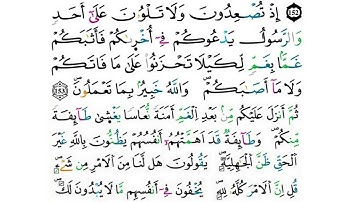 152 إِذْ تُصْعِدُونَ وَلَا تَلْوُۥنَ عَلَىٰٓ أَحَدٖ
وَالرَّسُولُ يَدْعُوكُمْ فِےٓ أُخْر۪ىٰكُمْ فَأَثَٰبَكُمْ
غَمَّۢا بِغَمّٖ لِّكَيْلَا تَحْزَنُوا۟ عَلَىٰ مَا فَاتَكُمْ
وَلَا مَآ أَصَٰبَكُمْۖ وَاللَّهُ خَبِيرُۢ بِمَا تَعْمَلُونَ 153
ثُمَّ أَنزَلَ عَلَيْكُم مِّنۢ بَعْدِ اِ۬لْغَمِّ أَمَنَةٗ نُّعَاسٗا يَغْش۪ىٰ طَآئِفَةٗ
مِّنكُمْۖ وَطَآئِفَةٞ قَدَ اَهَمَّتْهُمُۥٓ أَنفُسُهُمْ يَظُنُّونَ بِاللَّهِ غَيْرَ
اَ۬لْحَقِّ ظَنَّ اَ۬لْجَٰهِلِيَّةِۖ يَقُولُونَ هَل لَّنَا مِنَ اَ۬لَامْرِ مِن شَےْءٖۖ
قُلِ اِنَّ اَ۬لَامْرَ كُلَّهُۥ لِلهِۖ يُخْفُونَ فِےٓ أَنفُسِهِم مَّا لَا يُبْدُونَ لَكَۖ